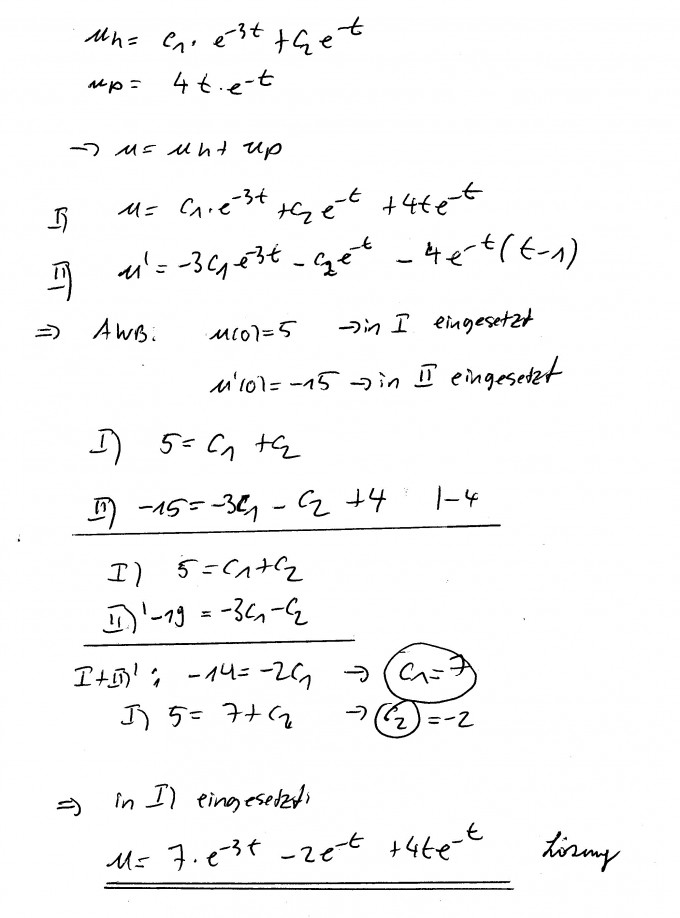 u_h = c₁·e^{-3t} + c₂e^{-t}
u_p = 4t·e^{-t}
→ u = u_h + u_p
I) u = c₁·e^{-3t} + c₂e^{-t} + 4te^{-t}
II) u' = -3c₁e^{-3t} - c₂e^{-t} - 4e^{-t}(t-1)
⇒ AWB: u(0)=5 → in I eingesetzt
u'(0) = -15 → in II eingesetzt
I) 5 = c₁ + c₂
II) -15 = -3c₁ - c₂ + 4 |-4
I) 5 = c₁ + c₂
II)' -19 = -3c₁ - c₂
I+II)': -14 = -2c₁ → c₁ = 7
I) 5 = 7 + c₂ → c₂ = -2
⇒ in I) eingesetzt:
u = 7·e^{-3t} - 2e^{-t} + 4te^{-t} Lösung